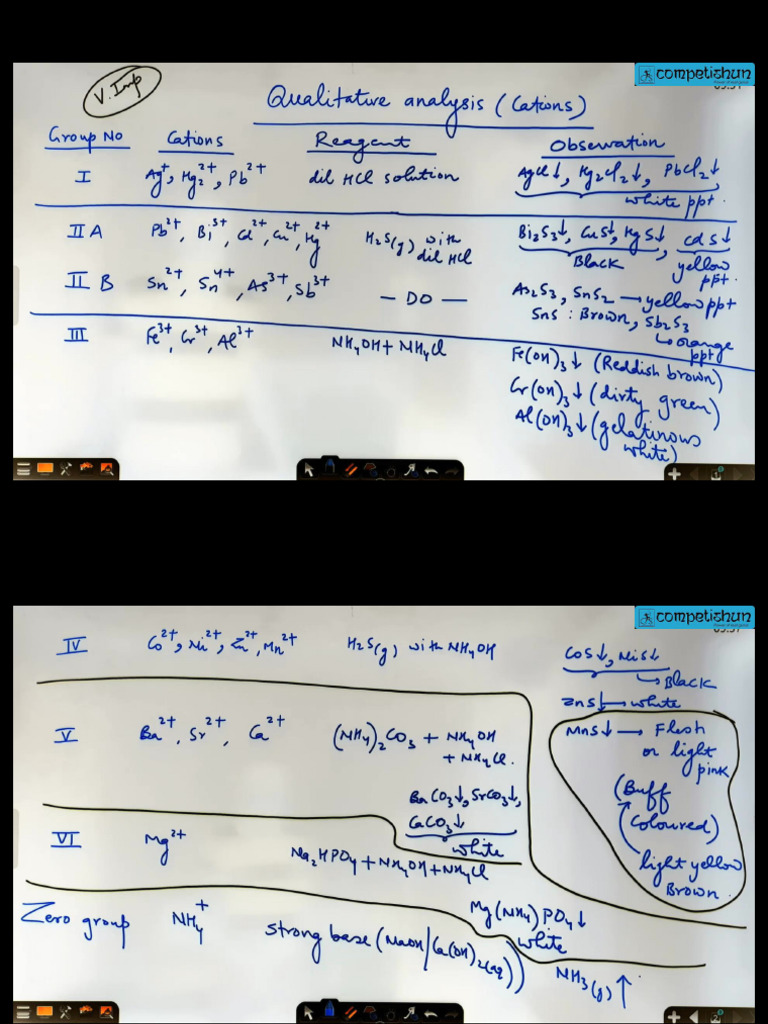 competishun
V. Imp
Qualitative analysis (Cations)
Group No Cations Reagent Observation
I Ag⁺, Hg₂²⁺, Pb²⁺ dil HCl solution AgCl↓, Hg₂Cl₂↓, PbCl₂↓
white ppt.
II A Pb²⁺, Bi³⁺, Cd²⁺, Cu²⁺, Hg²⁺ H₂S(g) with dil HCl Bi₂S₃↓, CuS↓, HgS↓, CdS↓
Black yellow ppt.
II B Sn²⁺, Sn⁴⁺, As³⁺, Sb³⁺ — DO — As₂S₃, SnS₂ → yellow ppt
SnS : Brown, Sb₂S₃
↳ orange ppt
III Fe³⁺, Cr³⁺, Al³⁺ NH₄OH + NH₄Cl Fe(OH)₃↓ (Reddish brown)
Cr(OH)₃↓ (dirty green)
Al(OH)₃↓ (gelatinous
white)
competishun
IV Co²⁺, Ni²⁺, Zn²⁺, Mn²⁺ H₂S(g) with NH₄OH CoS↓, NiS↓
↳ Black
ZnS↓ → white
MnS↓ → Flesh
or light
pink
(Buff
Coloured)
light yellow
Brown.
V Ba²⁺, Sr²⁺, Ca²⁺ (NH₄)₂CO₃ + NH₄OH
+ NH₄Cl.
BaCO₃↓, SrCO₃↓,
CaCO₃↓
white
VI Mg²⁺ Na₂HPO₄ + NH₄OH + NH₄Cl
Mg(NH₄)PO₄↓
white
Zero group NH₄⁺ strong base (NaOH/Ca(OH)₂(aq))
NH₃(g)↑